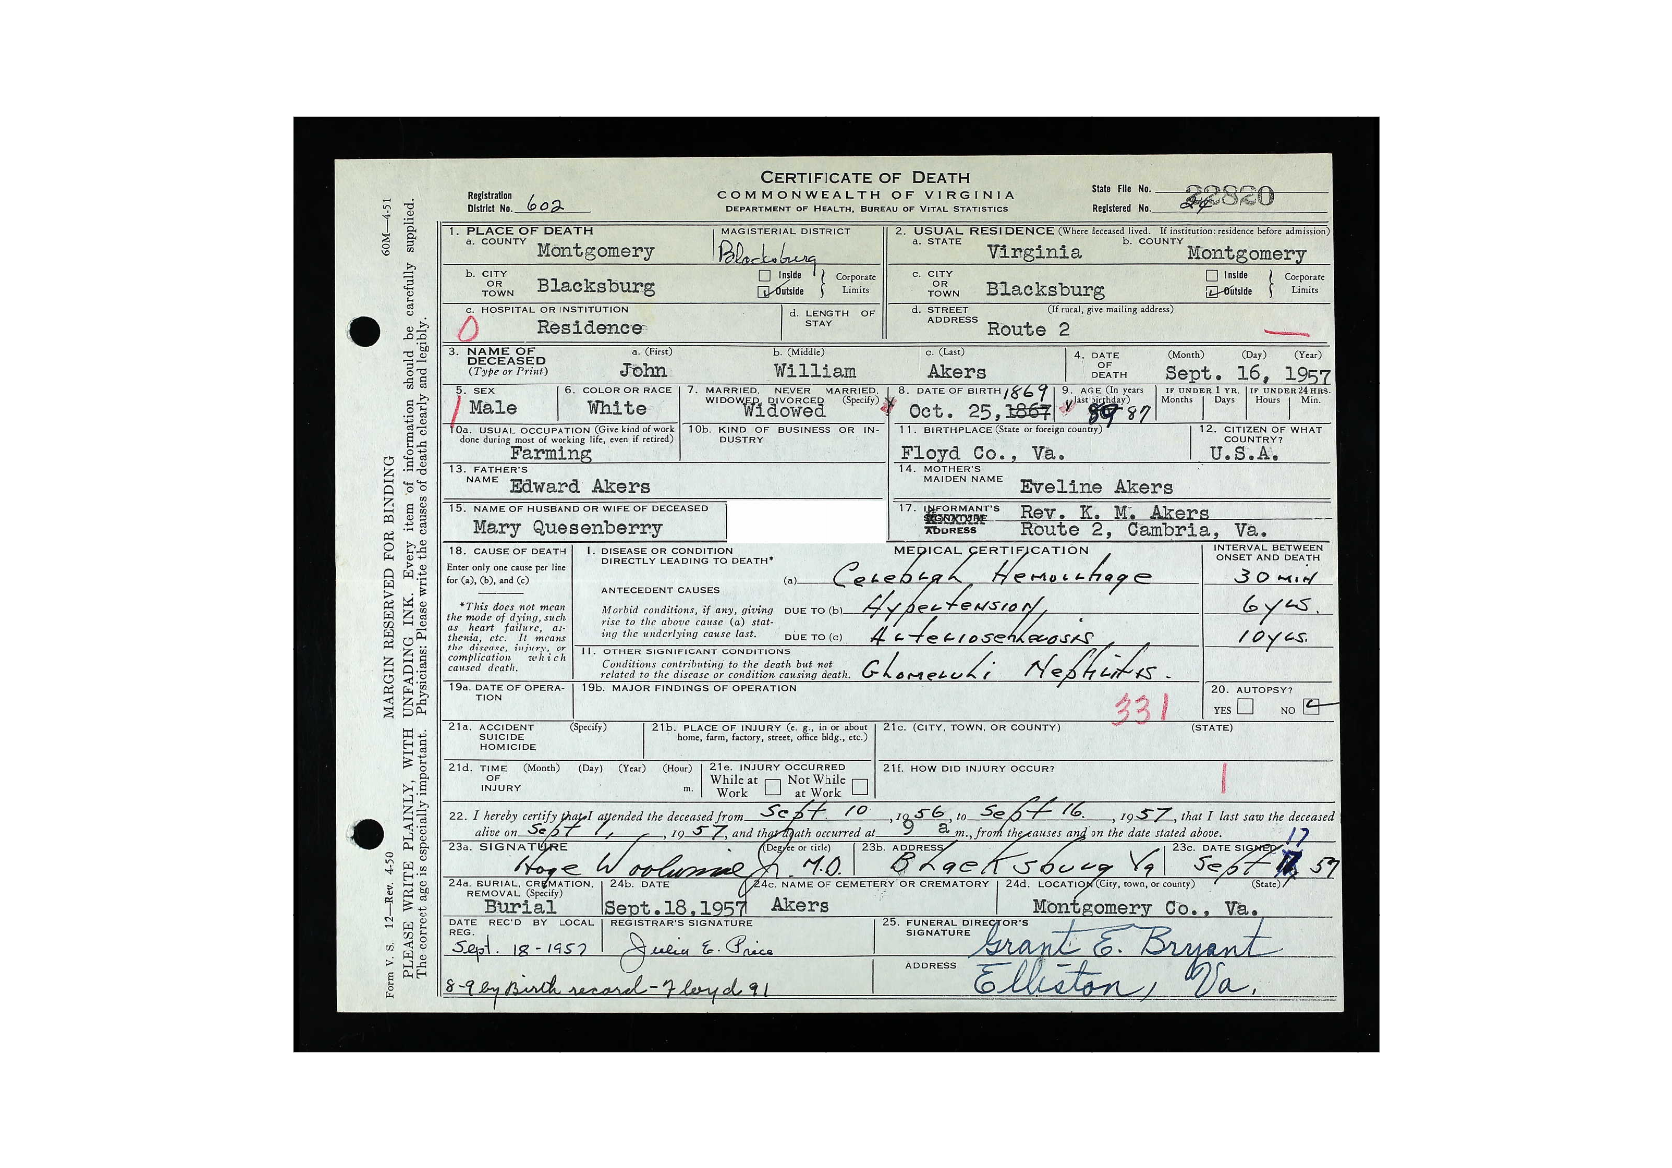 CERTIFICATE OF DEATH
COMMONWEALTH OF VIRGINIA
DEPARTMENT OF HEALTH, BUREAU OF VITAL STATISTICS
Registration District No. 602
State File No. 22820
Registered No.
1. PLACE OF DEATH
a. COUNTY Montgomery
MAGISTERIAL DISTRICT Blacksburg
2. USUAL RESIDENCE (Where deceased lived. If institution: residence before admission)
a. STATE Virginia b. COUNTY Montgomery
b. CITY OR TOWN Blacksburg Inside Outside Corporate Limits
c. CITY OR TOWN Blacksburg Inside Outside Corporate Limits
c. HOSPITAL OR INSTITUTION Residence
0
d. LENGTH OF STAY
d. STREET ADDRESS (If rural, give mailing address) Route 2
3. NAME OF DECEASED (Type or Print) a. (First) John b. (Middle) William c. (Last) Akers
4. DATE OF DEATH (Month) (Day) (Year) Sept. 16, 1957
5. SEX Male
6. COLOR OR RACE White
7. MARRIED, NEVER MARRIED, WIDOWED, DIVORCED (Specify) Widowed
8. DATE OF BIRTH 1869 Oct. 25, 1867
9. AGE (In years last birthday) 89 87
IF UNDER 1 YR. Months Days
IF UNDER 24 HRS. Hours Min.
10a. USUAL OCCUPATION (Give kind of work done during most of working life, even if retired) Farming
10b. KIND OF BUSINESS OR INDUSTRY
11. BIRTHPLACE (State or foreign country) Floyd Co., Va.
12. CITIZEN OF WHAT COUNTRY? U.S.A.
13. FATHER'S NAME Edward Akers
14. MOTHER'S MAIDEN NAME Eveline Akers
15. NAME OF HUSBAND OR WIFE OF DECEASED
Mary Quesenberry
17. INFORMANT'S SIGNATURE Rev. K. M. Akers
ADDRESS Route 2, Cambria, Va.
18. CAUSE OF DEATH
Enter only one cause per line for (a), (b), and (c)
*This does not mean the mode of dying, such as heart failure, asthenia, etc. It means the disease, injury, or complication which caused death.
MEDICAL CERTIFICATION
INTERVAL BETWEEN ONSET AND DEATH
I. DISEASE OR CONDITION DIRECTLY LEADING TO DEATH*
(a) Cerebral Hemorrhage 30 min
ANTECEDENT CAUSES
Morbid conditions, if any, giving rise to the above cause (a) stating the underlying cause last.
DUE TO (b) Hypertension 6 yrs.
DUE TO (c) Arteriosclerosis 10 yrs.
II. OTHER SIGNIFICANT CONDITIONS
Conditions contributing to the death but not related to the disease or condition causing death. Glomeruli Nephritis.
19a. DATE OF OPERATION
19b. MAJOR FINDINGS OF OPERATION
331
20. AUTOPSY?
YES NO
21a. ACCIDENT SUICIDE HOMICIDE (Specify)
21b. PLACE OF INJURY (e. g., in or about home, farm, factory, street, office bldg., etc.)
21c. (CITY, TOWN, OR COUNTY) (STATE)
21d. TIME OF INJURY (Month) (Day) (Year) (Hour) m.
21e. INJURY OCCURRED
While at Work Not While at Work
21f. HOW DID INJURY OCCUR?
22. I hereby certify that I attended the deceased from Sept. 10, 1956, to Sept 16, 1957, that I last saw the deceased
alive on Sept 1, 1957, and that death occurred at 9 a m., from the causes and on the date stated above.
23a. SIGNATURE (Degree or title) M.D.
23b. ADDRESS Blacksburg Va
23c. DATE SIGNED Sept 17 57
24a. BURIAL, CREMATION, REMOVAL (Specify) Burial
24b. DATE Sept.18,1957
24c. NAME OF CEMETERY OR CREMATORY Akers
24d. LOCATION (City, town, or county) (State) Montgomery Co., Va.
DATE REC'D BY LOCAL REG. Sept. 18-1957
REGISTRAR'S SIGNATURE Julia E. Price
25. FUNERAL DIRECTOR'S SIGNATURE Grant E. Bryant
ADDRESS Elliston, Va.
8-9 by Birth record - Floyd 91
Form V. S. 12—Rev. 4-50 MARGIN RESERVED FOR BINDING 60M—4-51
PLEASE WRITE PLAINLY, WITH UNFADING INK. Every item of information should be carefully supplied.
The correct age is especially important. Physicians: Please write the causes of death clearly and legibly.